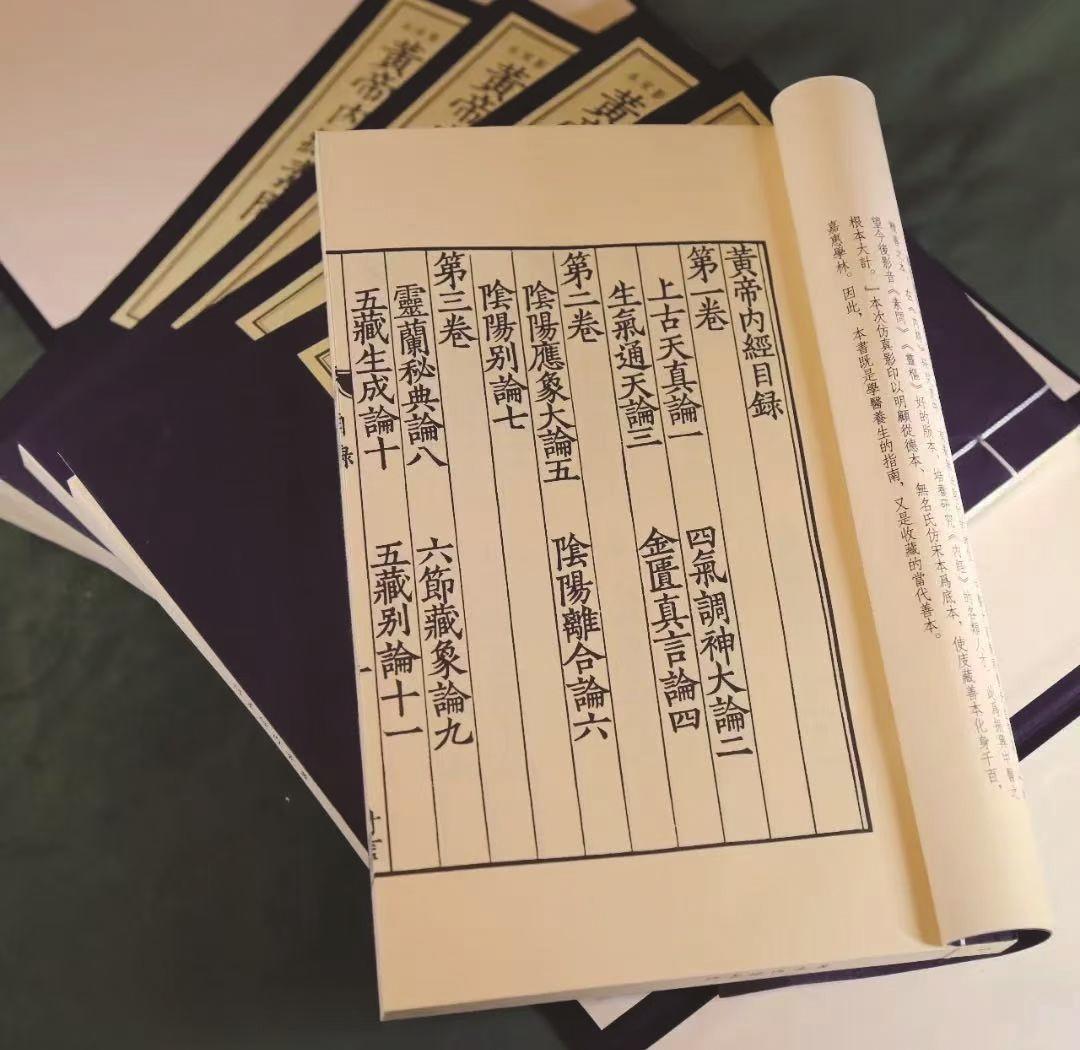 望今後影《素問》《靈樞》好的版本，培養研究《內經》的各類人才，此爲振興中醫之
根本大計。』本次仿真影印以明顧從德本、無名氏仿宋本爲底本，使庋藏善本化身千百，
嘉惠學林。因此，本書既是學醫養生的指南，又是收藏的當代善本。
黃帝內經目錄
第一卷
上古天真論一　四氣調神大論二
生氣通天論三　金匱真言論四
第二卷
陰陽應象大論五　陰陽離合論六
陰陽别論七
第三卷
靈蘭秘典論八　六節藏象論九
五藏生成論十　五藏别論十一
目錄
一
黃
黃帝
黃帝內經素問